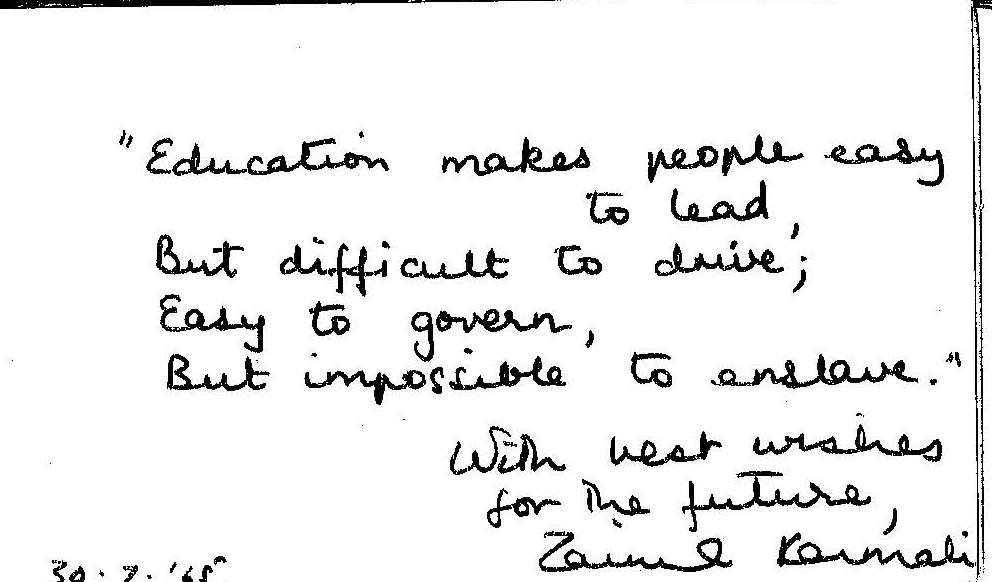 "Education makes people easy
to lead,
But difficult to drive;
Easy to govern,
But impossible to enslave."
With best wishes
for the future,
Karmali